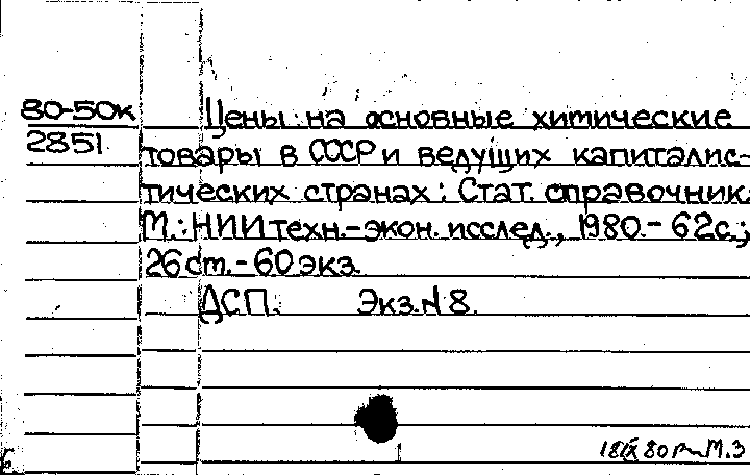 80-50к
2851
Цены на основные химические
товары в СССР и ведущих капиталис-
тических странах: Стат. справочник.
М.: НИИ техн.-экон. исслед., 1980.- 62с.;
26 ст.- 60 экз.
ДСП. Экз.N 8.
18 IX 80 М.З